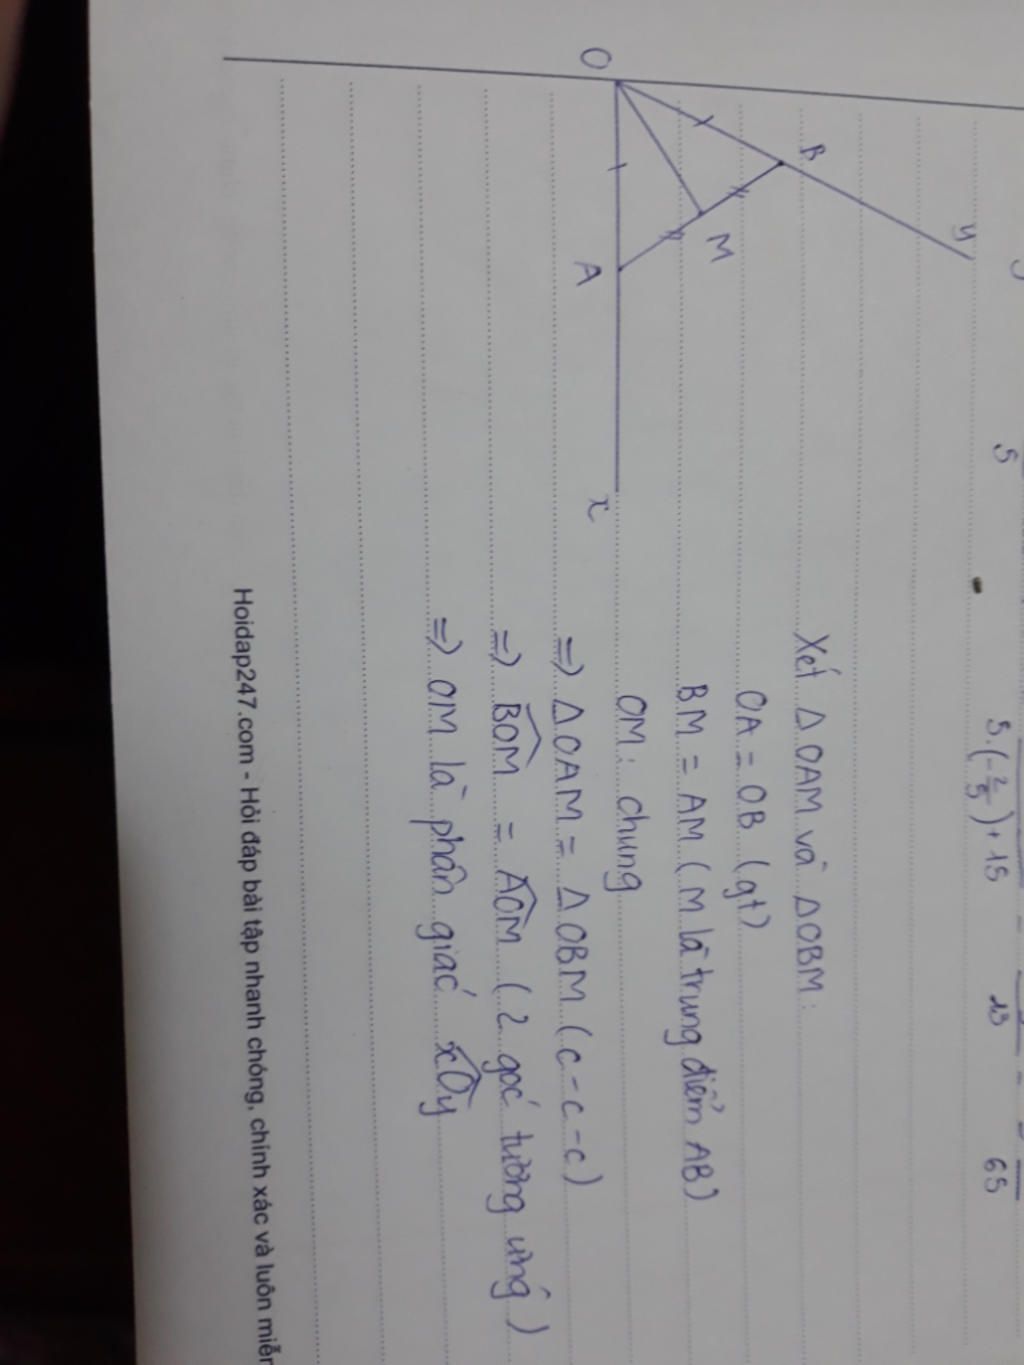 5
5.(-2/5)+15
13
65
O
B
y
M
A
x
Xét Δ OAM và Δ OBM:
OA = OB (gt)
BM = AM (M là trung điểm AB)
OM: chung
=) Δ OAM = Δ OBM (c-c-c)
=) BOM = AOM (2 goć tương ưnǵ)
=) OM là phân giać xOy
Hoidap247.com - Hỏi đáp bài tập nhanh chóng, chính xác và luôn miễn